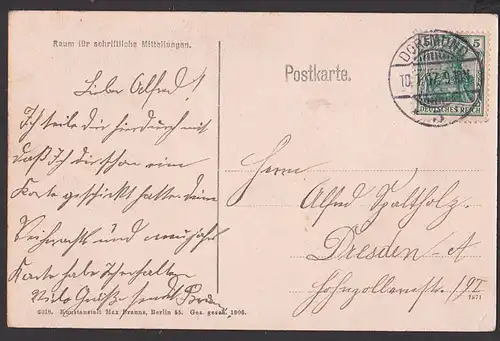 Raum für schriftliche Mitteilungen.
Lieber Alfred!
Ich teile dir hierdurch mit
daß Ich dir schon eine
Karte geschickt hatte deine
Weihnacht und neujahrs
Karte habe Ich erhalten
Viele Grüße sendt
6418. Kunstanstalt Max Brauns, Berlin 55. Ges. gesch. 1906.
Postkarte.
DORTMUND
5
DEUTSCHES REICH
Herrn
Alfred Spaltholz.
Dresden-A
Hohenzollernstr. 19I
7871